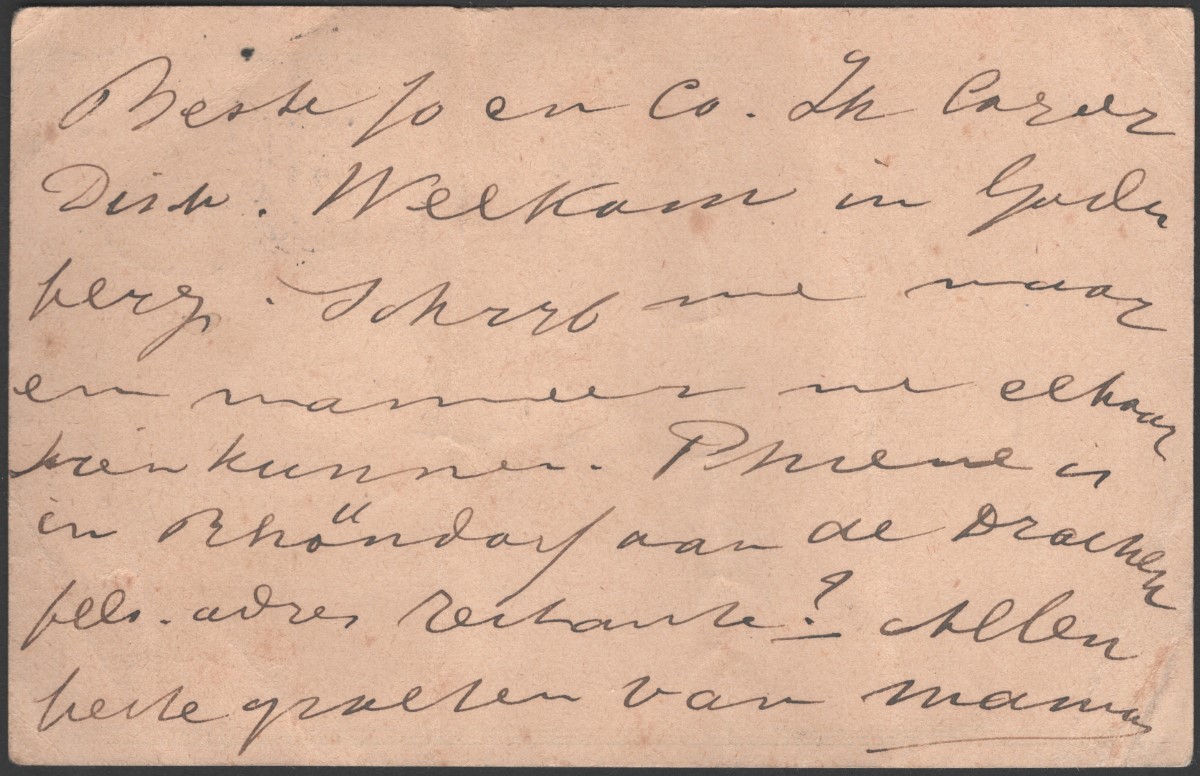 Beste Jo en Co. In Carer
Dirk. Welkom in Godes
berg. Schryf me waar
en wanneer we elkaar
zien kunnen. Phiene is
in Rhöndorf aan de Drachen
fels. adres restante? Allen
beste groeten van mama